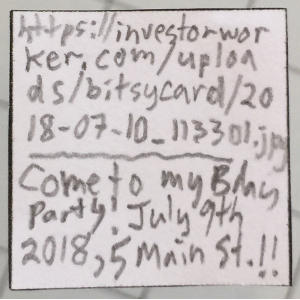 https://investorwor
ker.com/uploa
ds/bitsycard/20
18-07-10_113301.jpg
Come to my Bday
Party! July 9th
2018, 5 Main St.!!